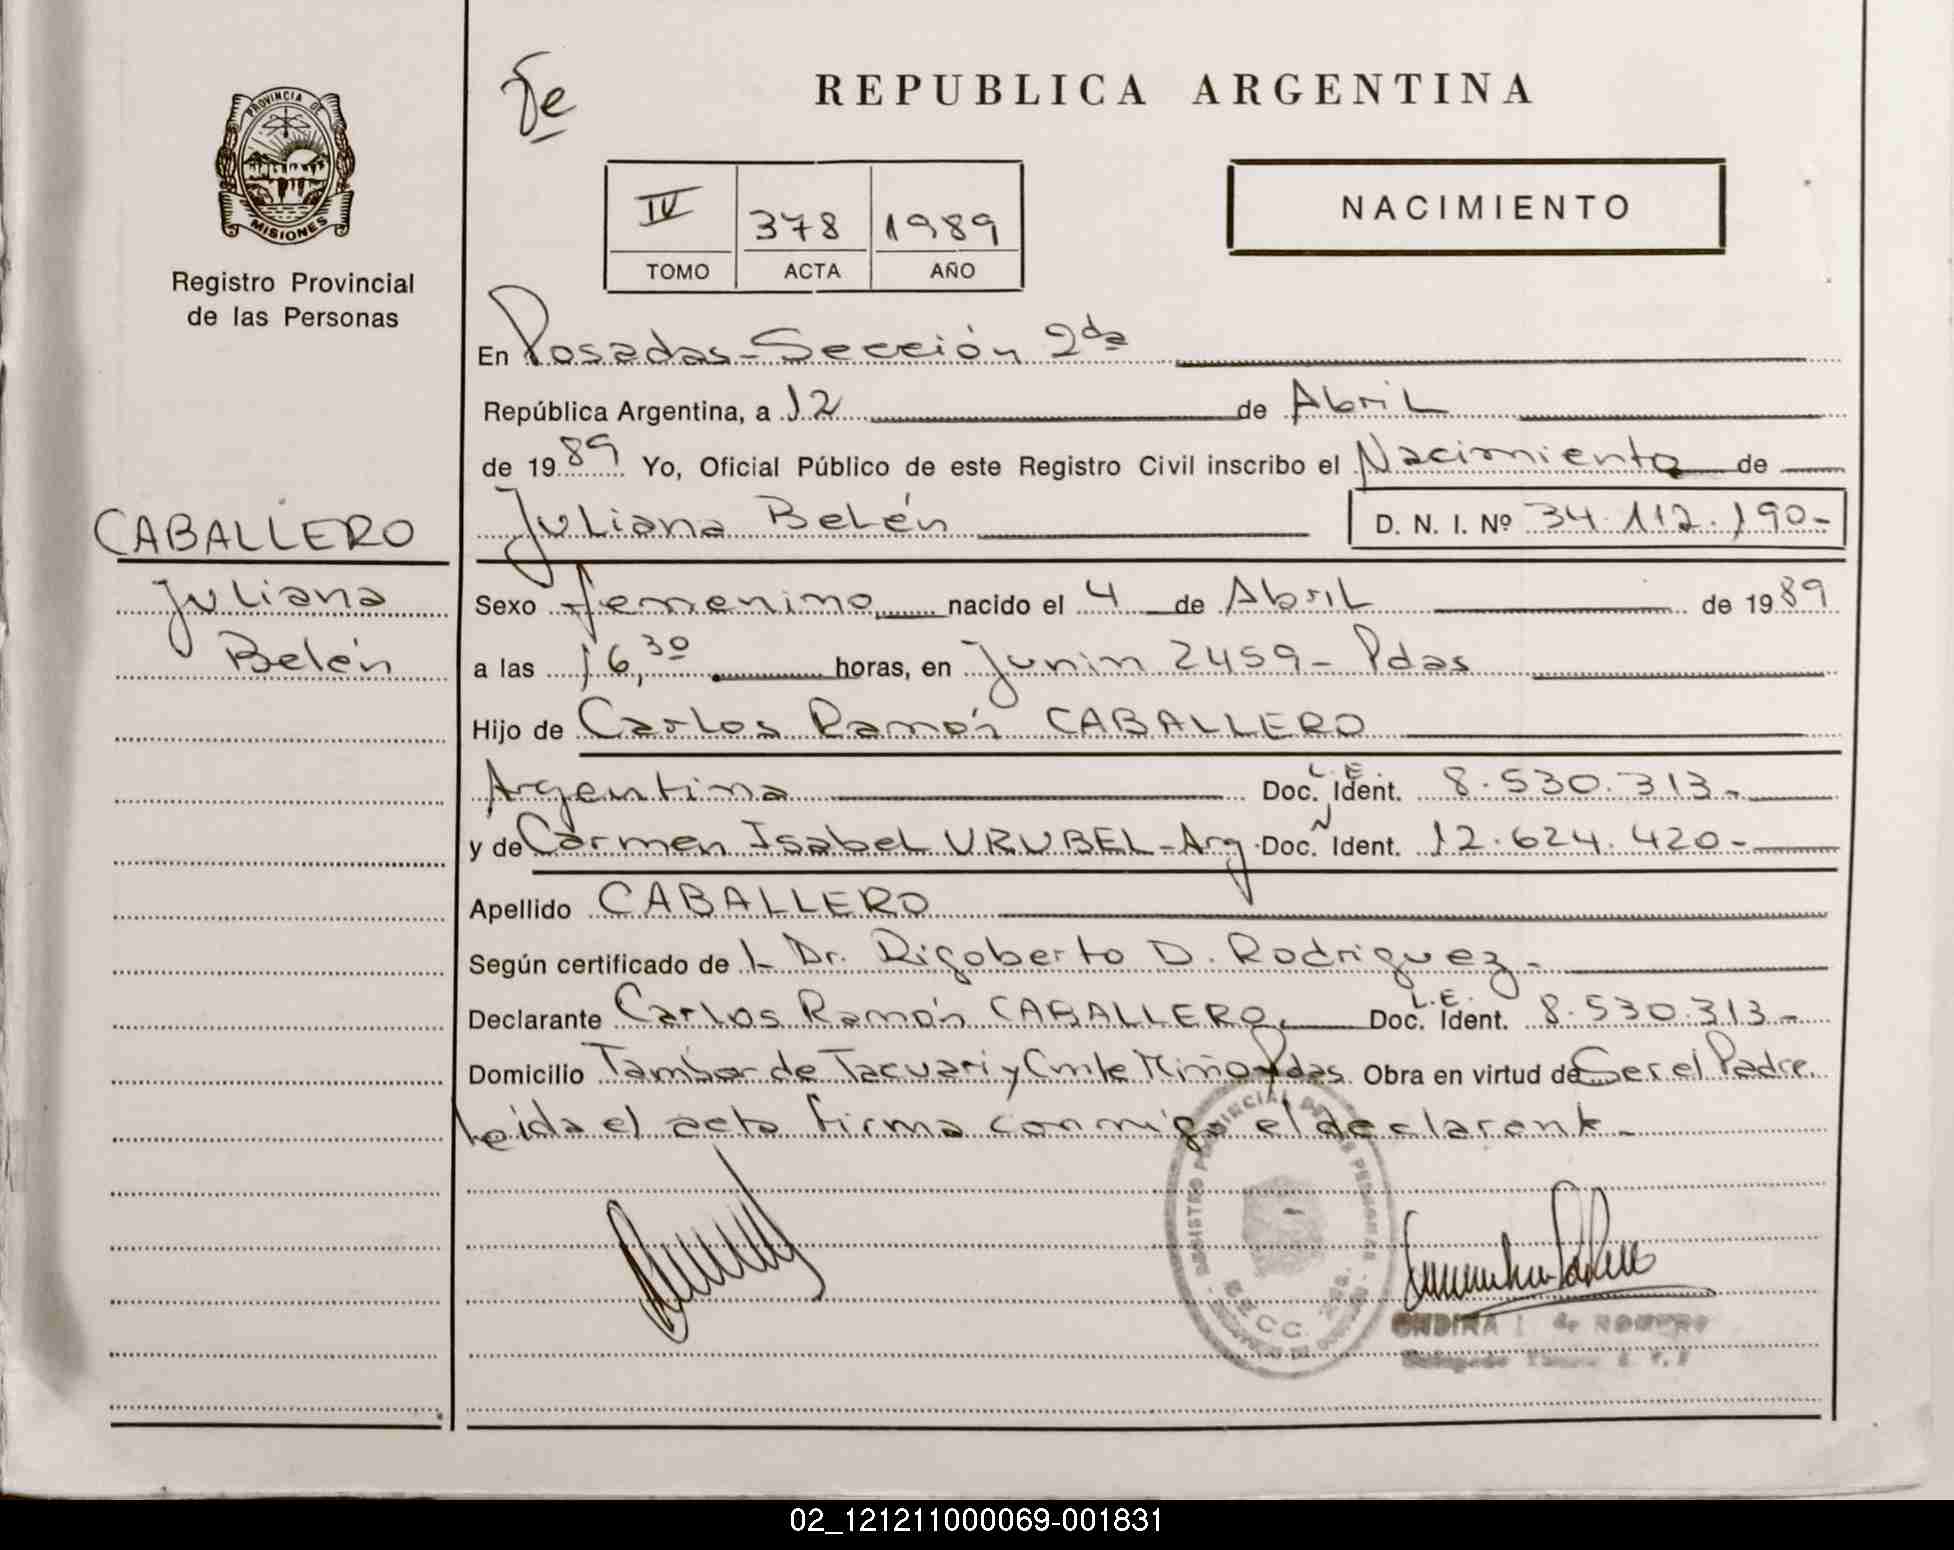 Fe
REPUBLICA ARGENTINA
PROVINCIA DE
MISIONES
IV 378 1989
TOMO ACTA AÑO
NACIMIENTO
Registro Provincial
de las Personas
En Posadas - Sección 2da
República Argentina, a 12 de Abril
de 1989 Yo, Oficial Público de este Registro Civil inscribo el Nacimiento de
CABALLERO
Juliana Belén D. N. I. Nº 34.112.190-
Juliana
Belén
Sexo femenino nacido el 4 de Abril de 1989
a las 16,30 horas, en Junin 2459 - Pdas
Hijo de Carlos Ramón CABALLERO
Argentina Doc. L.E. Ident. 8.530.313-
y de Carmen Isabel URUBEL - Arg. Doc. N Ident. 12.624.420-
Apellido CABALLERO
Según certificado de l- Dr. Rigoberto D. Rodriguez -
Declarante Carlos Ramón CABALLERO Doc. L.E. Ident. 8.530.313-
Domicilio Tambor de Tacuari y Cmte Miño Pdas Obra en virtud de Ser el Padre.
Leida el acta firma conmigo el declarante -
REGISTRO PROVINCIAL DE LAS PERSONAS
02_121211000069-001831